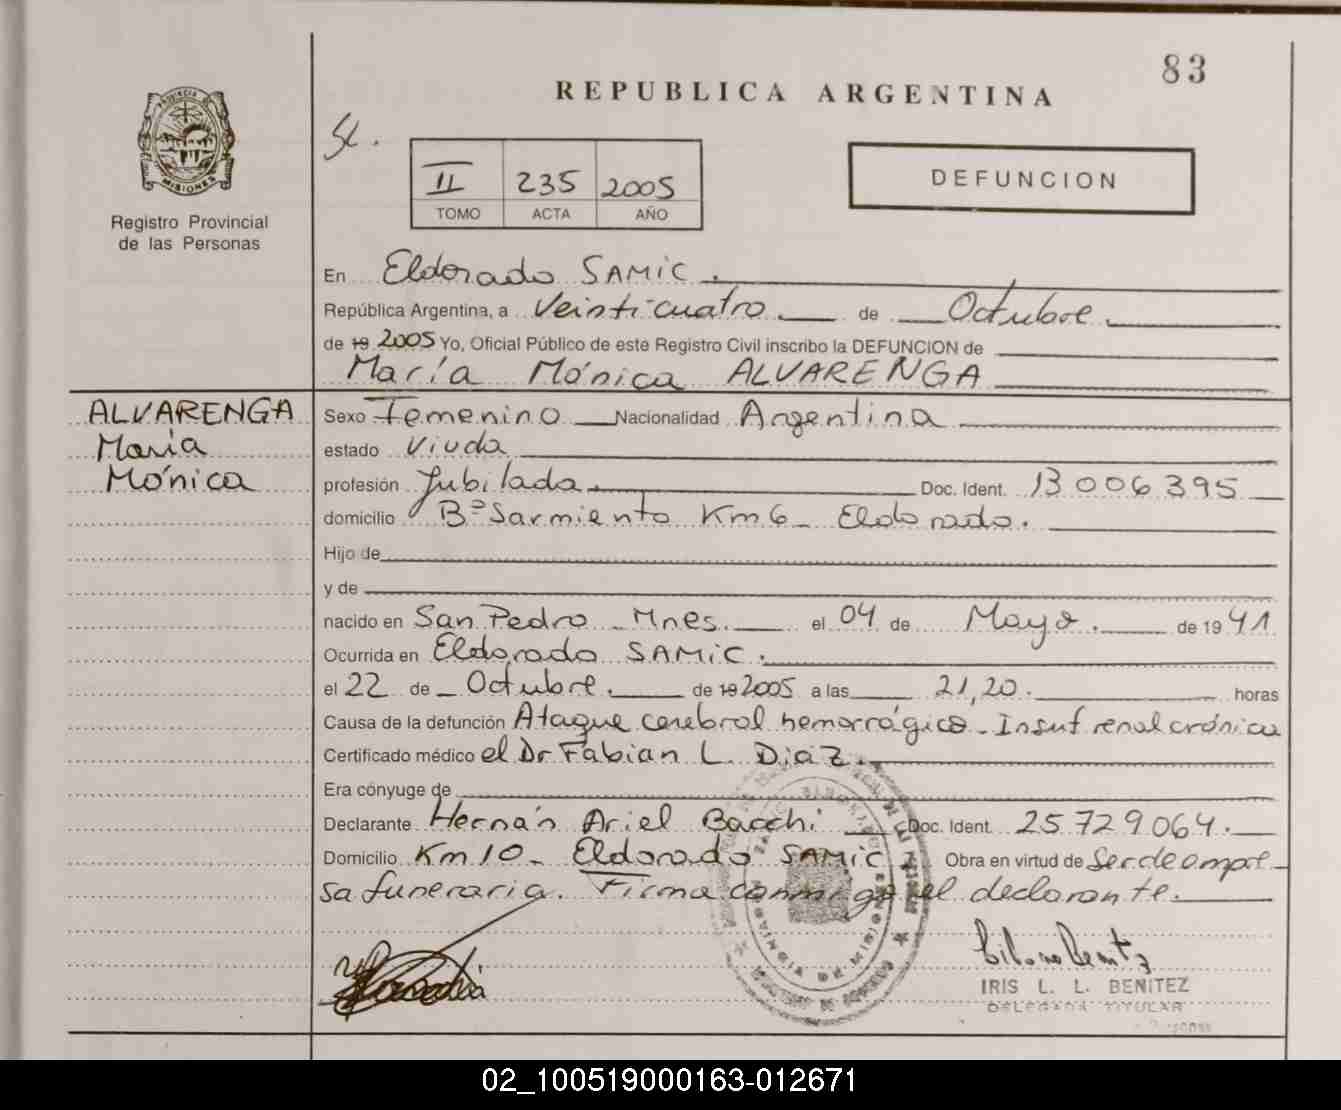 83
REPUBLICA ARGENTINA
PROVINCIA DE
MISIONES
Registro Provincial
de las Personas
II 235 2005
TOMO ACTA AÑO
DEFUNCION
En Eldorado SAMIC.
República Argentina, a Veinticuatro. de Octubre.
de 19 2005 Yo, Oficial Público de este Registro Civil inscribo la DEFUNCION de
María Mónica ALVARENGA
ALVARENGA
María
Mónica
Sexo Femenino Nacionalidad Argentina
estado Viuda
profesión Jubilada. Doc. Ident. 13 006 395
domicilio Bº Sarmiento Km 6 - Eldorado.
Hijo de
y de
nacido en San Pedro - Mnes. el 04 de Mayo. de 19 41
Ocurrida en Eldorado SAMIC.
el 22 de Octubre. de 19 2005 a las 21,20. horas
Causa de la defunción Ataque cerebral hemorrágico - Insuf renal crónica
Certificado médico el Dr Fabian L. Diaz.
Era cónyuge de
Declarante Hernán Ariel Bacchi Doc. Ident. 25 729 064.
Domicilio Km 10 - Eldorado SAMIC Obra en virtud de Ser de empre
sa funeraria. Firma conmigo el declarante.
IRIS L. L. BENITEZ
DELEGADA TITULAR
02_100519000163-012671